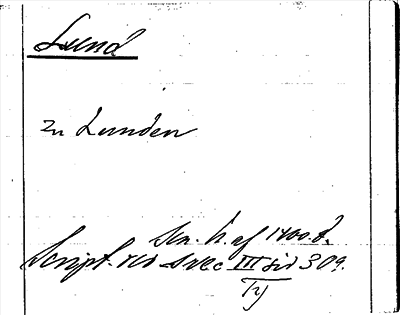 Lund
zu Lunden
Sen. h. af 1400. t.
Script. rer svec III sid 309.
Ty